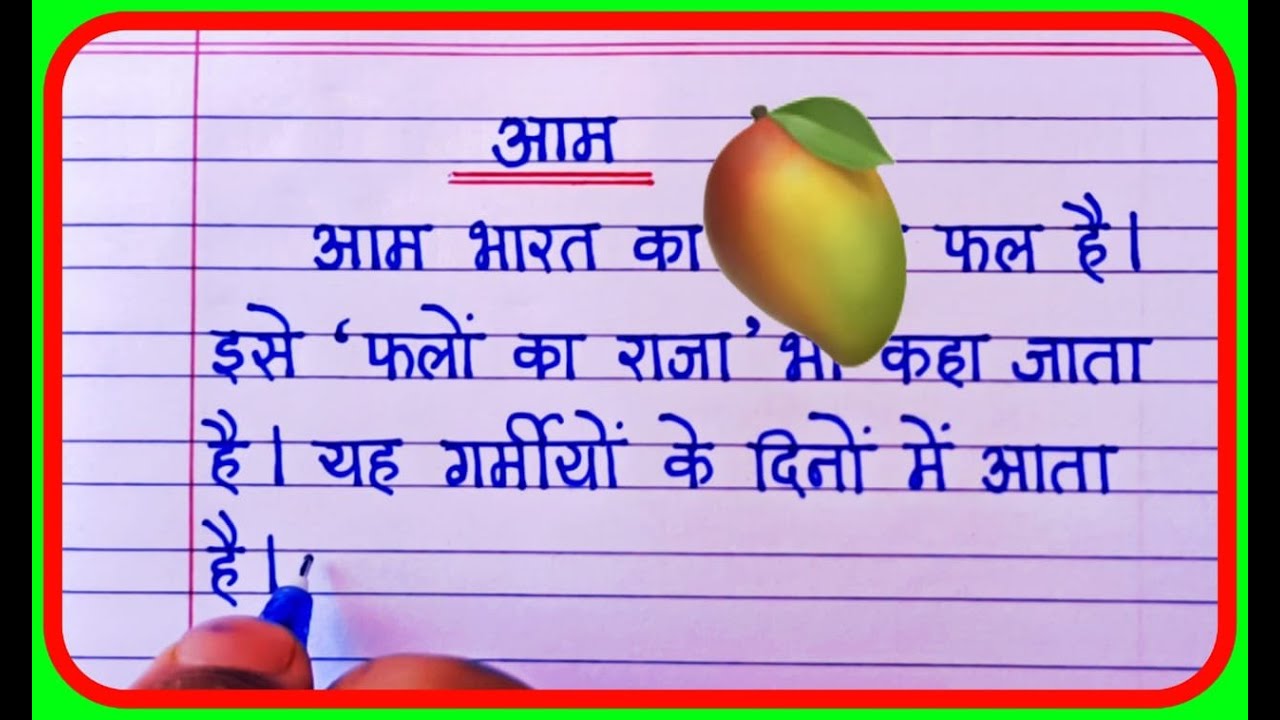 आम
आम भारत का फल है।
इसे ‘फलों का राजा’ कहा जाता
है। यह गर्मीयों के दिनों में आता
है।